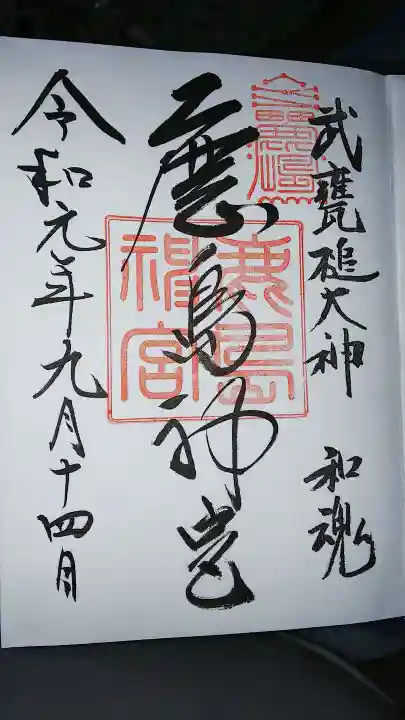 武甕槌大神 和魂
鹿島神宮
鹿島神宮
令和元年九月十四日